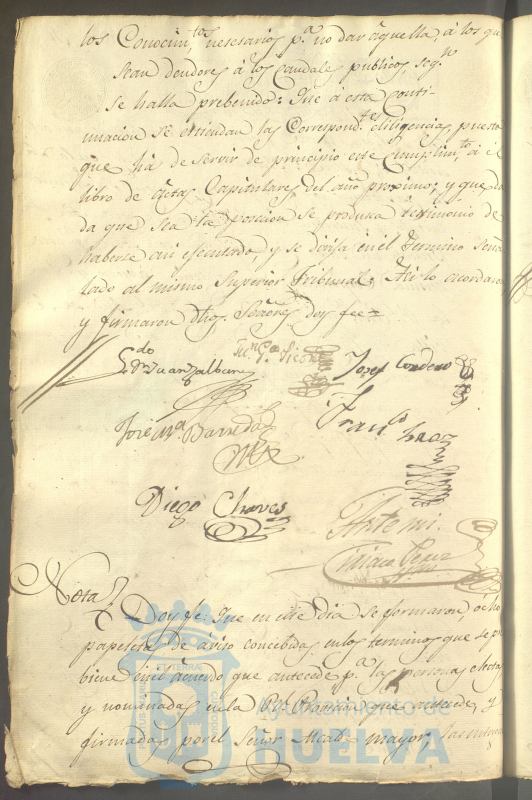 los Conocim.tos nesesarios p.a no dar aquella á los que
sean deudores á los caudales publicos, seg.n
se halla prebenido: Que á esta conti-
nuacion se estiendan las Correspond.tes diligencias, puesto
que há de servir de principio este Cumplim.to á el
libro de Actas Capitulares del año proximo; y que da
da que sea la posecion se produsca testimonio de
haberse asi efectuado, y se dirija en el termino seña
lado al mismo Superior Tribunal: Asi lo acordaron
y firmaron dhos. Señores doy fee=
Josef Cordero
José M.a Barreda
Fran.co
Diego Chaves
Ante mi.
Perez
Nota
Doy fe: Que en este dia se formaron, ocho
papeletas de aviso concebidas en los terminos que se pre
biene en el acuerdo que antecede p.a las personas electas
y nominadas en la R.l Provision que antecede, y
firmadas por el Señor Alcalde mayor,
Ayuntamiento de
HUELVA